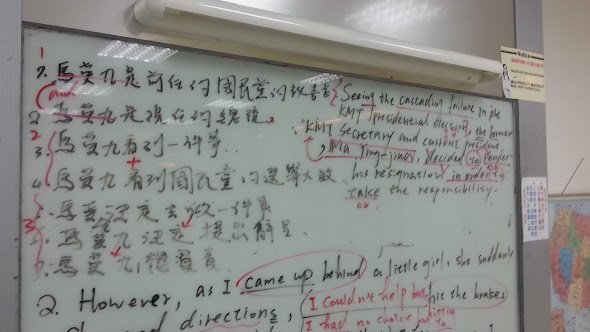 1
1. 馬英九是前任的國民黨的秘書長
and
2. 馬英九是現任的總統.
2
3. 馬英九看到一件事..
+
4. 馬英九看到國民黨的選舉大敗
3
馬英九決定去做一件事
馬英九決定提出辭呈.
馬英九想負責
Seeing the cascading failure in the
KMT presidential election, the former
KMT Secretary and current president
, Ma Ying-jiou, decided to tender
his resignation in order to
take the responsibility.
or
2. However, as I came up behind a little girl, she suddenly
directions, I couldn't help but hit the brakes
I had no choice but to
Notice